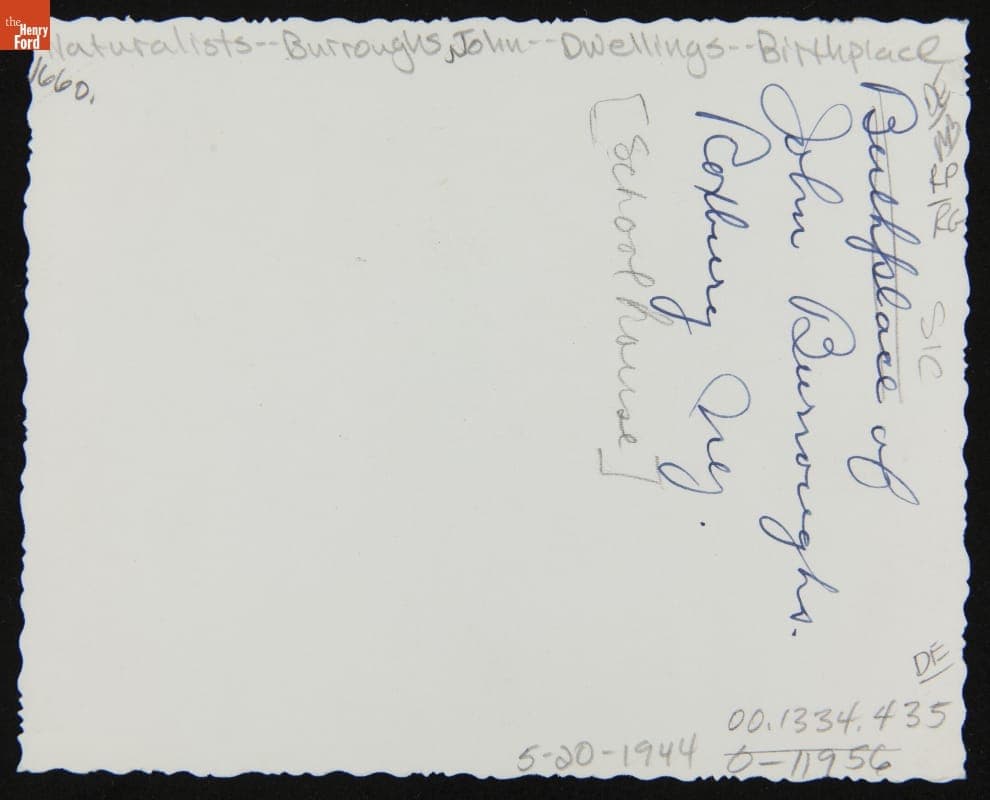 the Henry Ford
Naturalists--Burroughs, John--Dwellings--Birthplace
1660.
Birthplace of
John Burroughs.
Roxbury Ney.
[Schoolhouse]
SIC
DE
00.1334.435
5-20-1944 0-11956